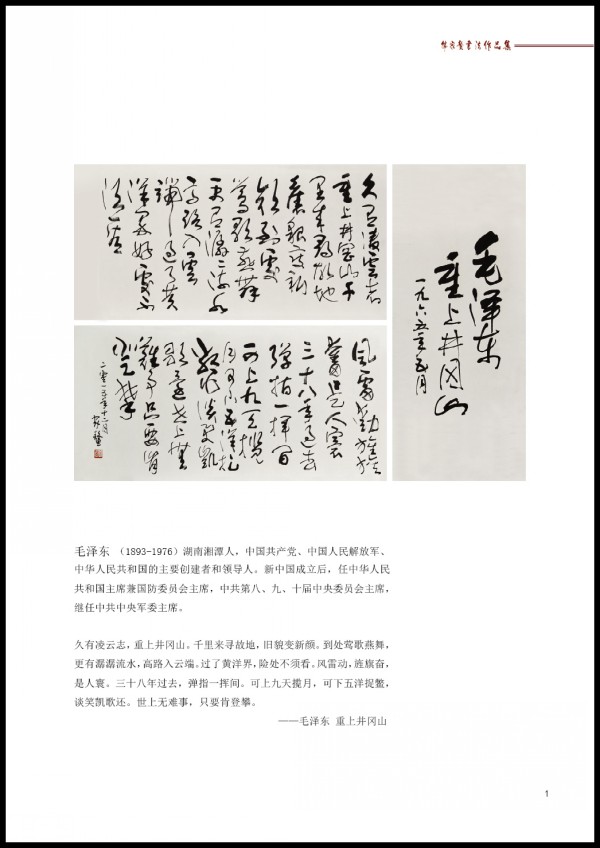 书法作品集
久有凌雲志
重上井岡山千
里来尋故地
舊貌變新
顔到處
莺歌燕舞
更有潺潺流水
高路入雲
端過了黄
洋界险處不
須看
毛泽东
重上井冈山
一九六五年五月
風雷動旌旗
奮是人寰
三十八年過去
弹指一挥間
可上九天攬
月可下五洋捉
鱉談笑凯
歌還世上無
難事只要肯
登攀
二零一五年十二月
毛泽东 (1893-1976)湖南湘潭人，中国共产党、中国人民解放军、
中华人民共和国的主要创建者和领导人。新中国成立后，任中华人民
共和国主席兼国防委员会主席，中共第八、九、十届中央委员会主席，
继任中共中央军委主席。
久有凌云志，重上井冈山。千里来寻故地，旧貌变新颜。到处莺歌燕舞，
更有潺潺流水，高路入云端。过了黄洋界，险处不须看。风雷动，旌旗奋，
是人寰。三十八年过去，弹指一挥间。可上九天揽月，可下五洋捉鳖，
谈笑凯歌还。世上无难事，只要肯登攀。
——毛泽东 重上井冈山
1